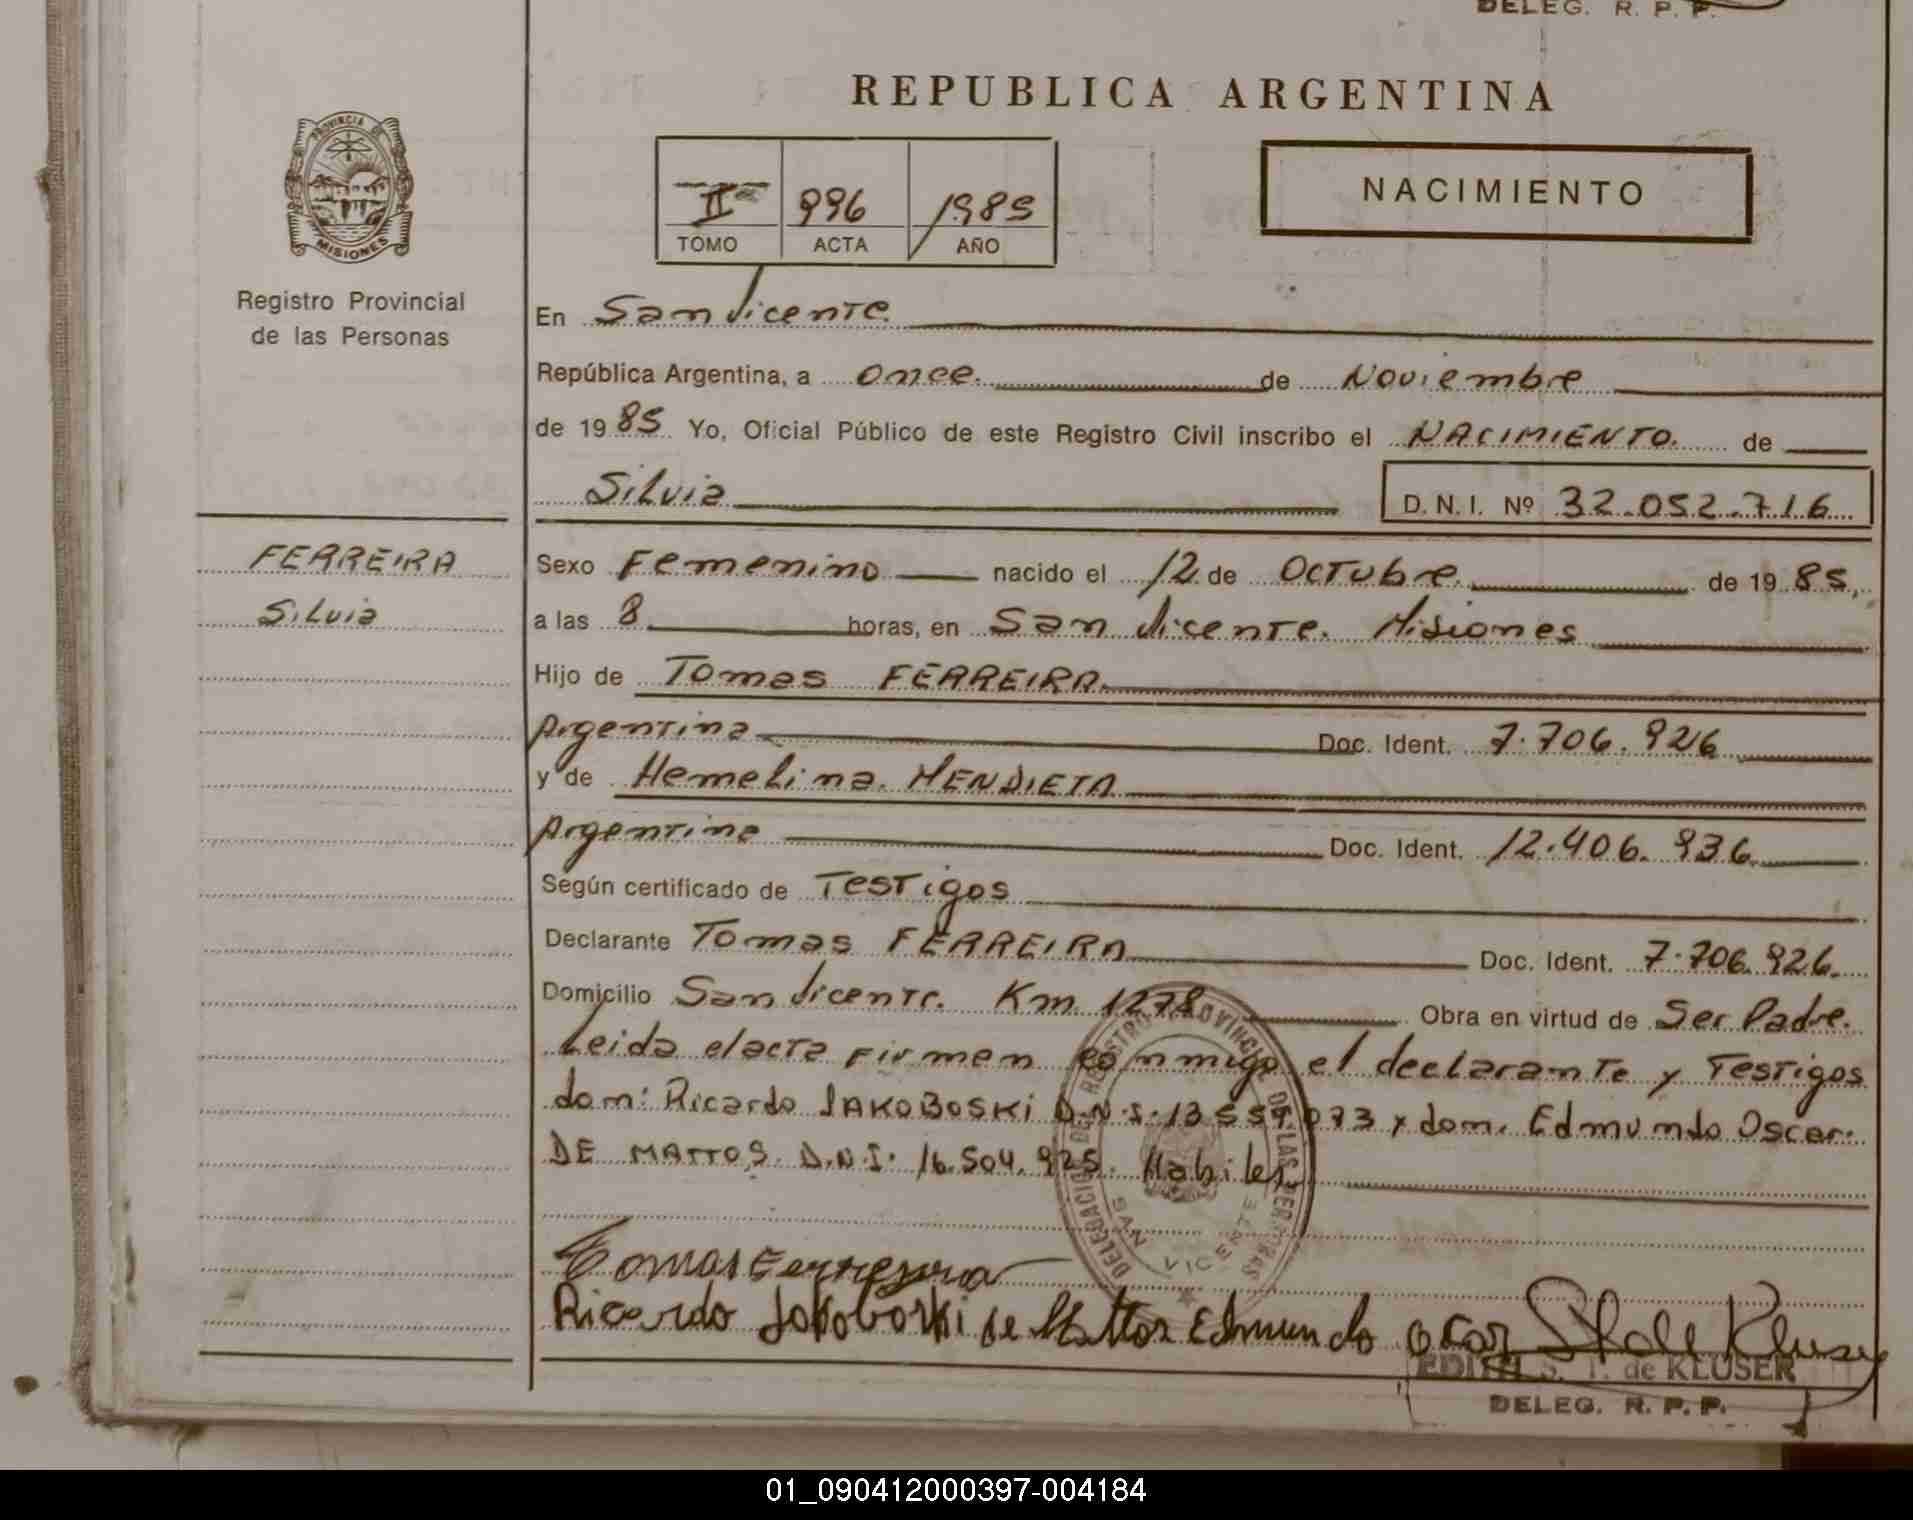 DELEG. R. P. P.
REPUBLICA ARGENTINA
PROVINCIA DE
MISIONES
Registro Provincial
de las Personas
II 996 1985
TOMO ACTA AÑO
NACIMIENTO
En San Vicente
República Argentina, a once. de Noviembre
de 1985 Yo, Oficial Público de este Registro Civil inscribo el NACIMIENTO. de
Silvia D. N. I. Nº 32.052.716
FERREIRA
Silvia
Sexo Femenino nacido el 12 de Octubre de 1985,
a las 8 horas, en San Vicente. Misiones
Hijo de Tomas FERREIRA.
Argentina Doc. Ident. 7.706.926
y de Hemelina. MENDIETA
Argentina Doc. Ident. 12.406.936
Según certificado de Testigos
Declarante Tomas FERREIRA Doc. Ident. 7.706.926.
Domicilio San Vicente. Km. 1278 Obra en virtud de Ser Padre.
Leida el acta firman conmigo el declarante y Testigos
dom: Ricardo JAKOBOSKi D.N.I. 13 559 073 y dom. Edmundo Oscar.
DE MATTOS. D.N.I. 16.504.925. Habiles
DELEGACION DEL REGISTRO PROVINCIAL DE LAS PERSONAS
SAN VICENTE
Tomas Ferreyra
Ricardo Jakoboski de Mattos Edmundo oscar
EDITH S. T. de KLUSER
DELEG. R. P. P.
01_090412000397-004184